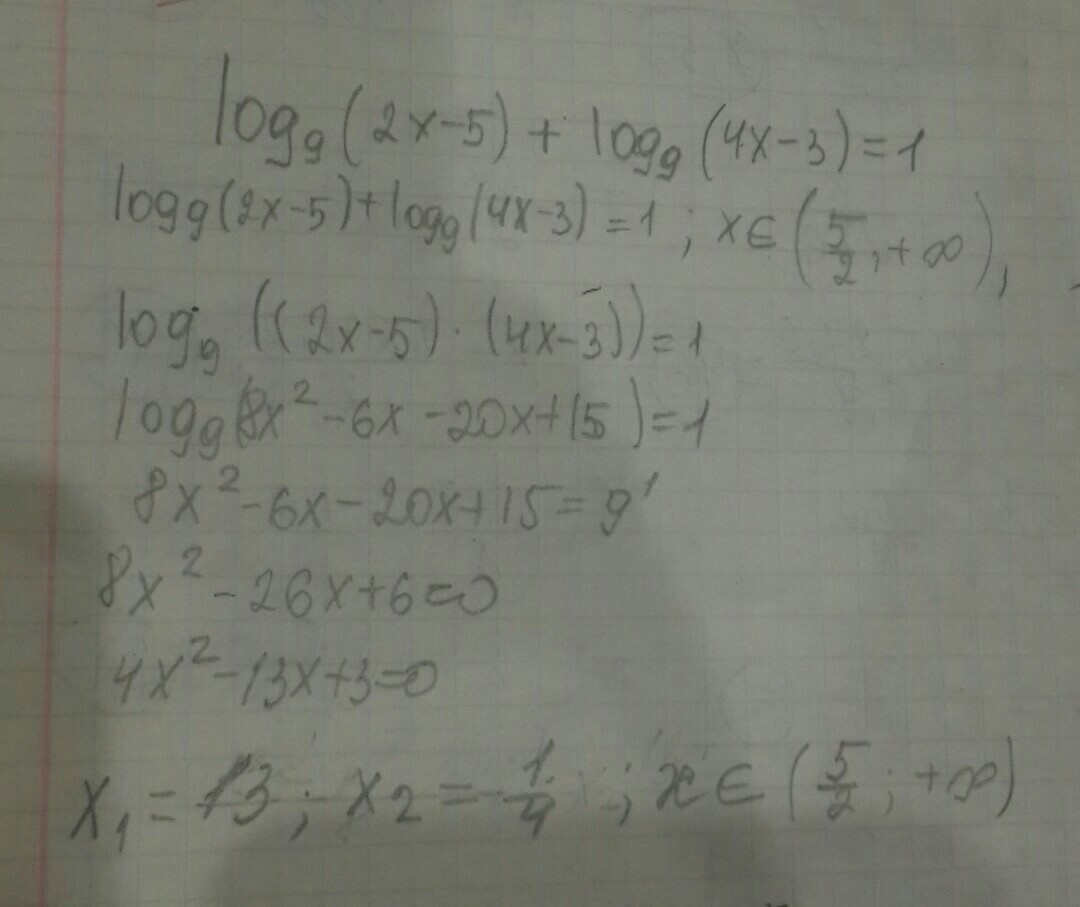 log₉(2x-5) + log₉(4x-3) = 1
log₉(2x-5)+log₉(4x-3) = 1 ; x∈(5/2, +∞),
log₉((2x-5)·(4x-3)) = 1
log₉(8x²-6x-20x+15) = 1
8x²-6x-20x+15 = 9¹
8x²-26x+6=0
4x²-13x+3=0
x₁ = 3 ; x₂ = 1/4 ; x∈(5/2 ; +∞)